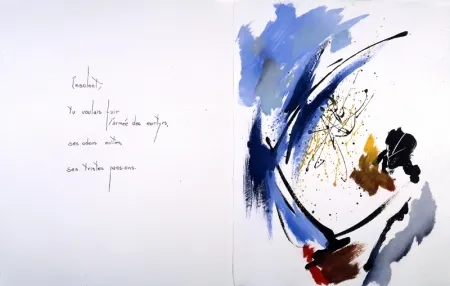 Insolent,
Tu voulais fuir
l'armée des martyrs,
ses odeurs mitées,
ses tristes pensions.